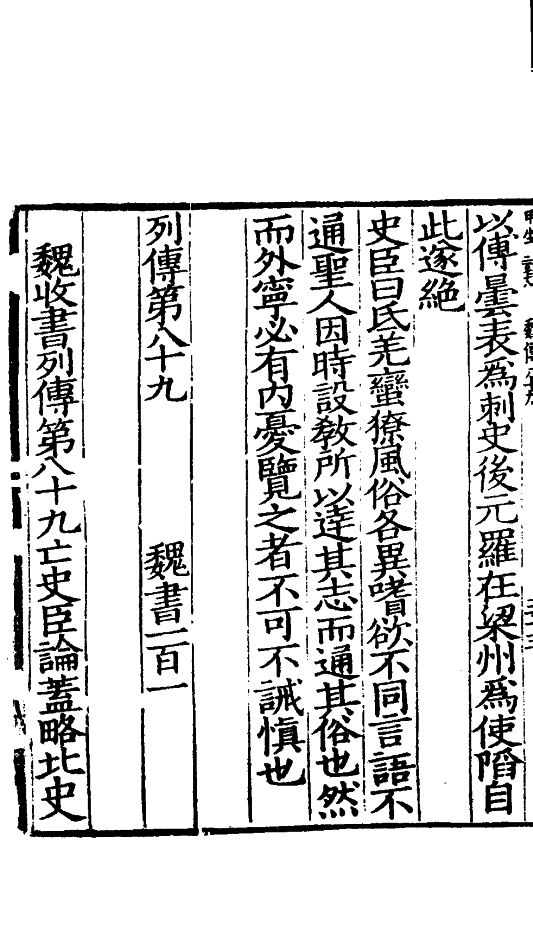 以傅曇表爲刺史後元羅在梁州爲使䧟自
此遂絶
史臣曰氐羌蠻獠風俗各異嗜欲不同言語不
通聖人因時設敎所以達其志而通其俗也然
而外寧必有内憂覽之者不可不誡愼也
列傳第八十九 魏書一百一
魏收書列傳第八十九亡史臣論蓋略北史